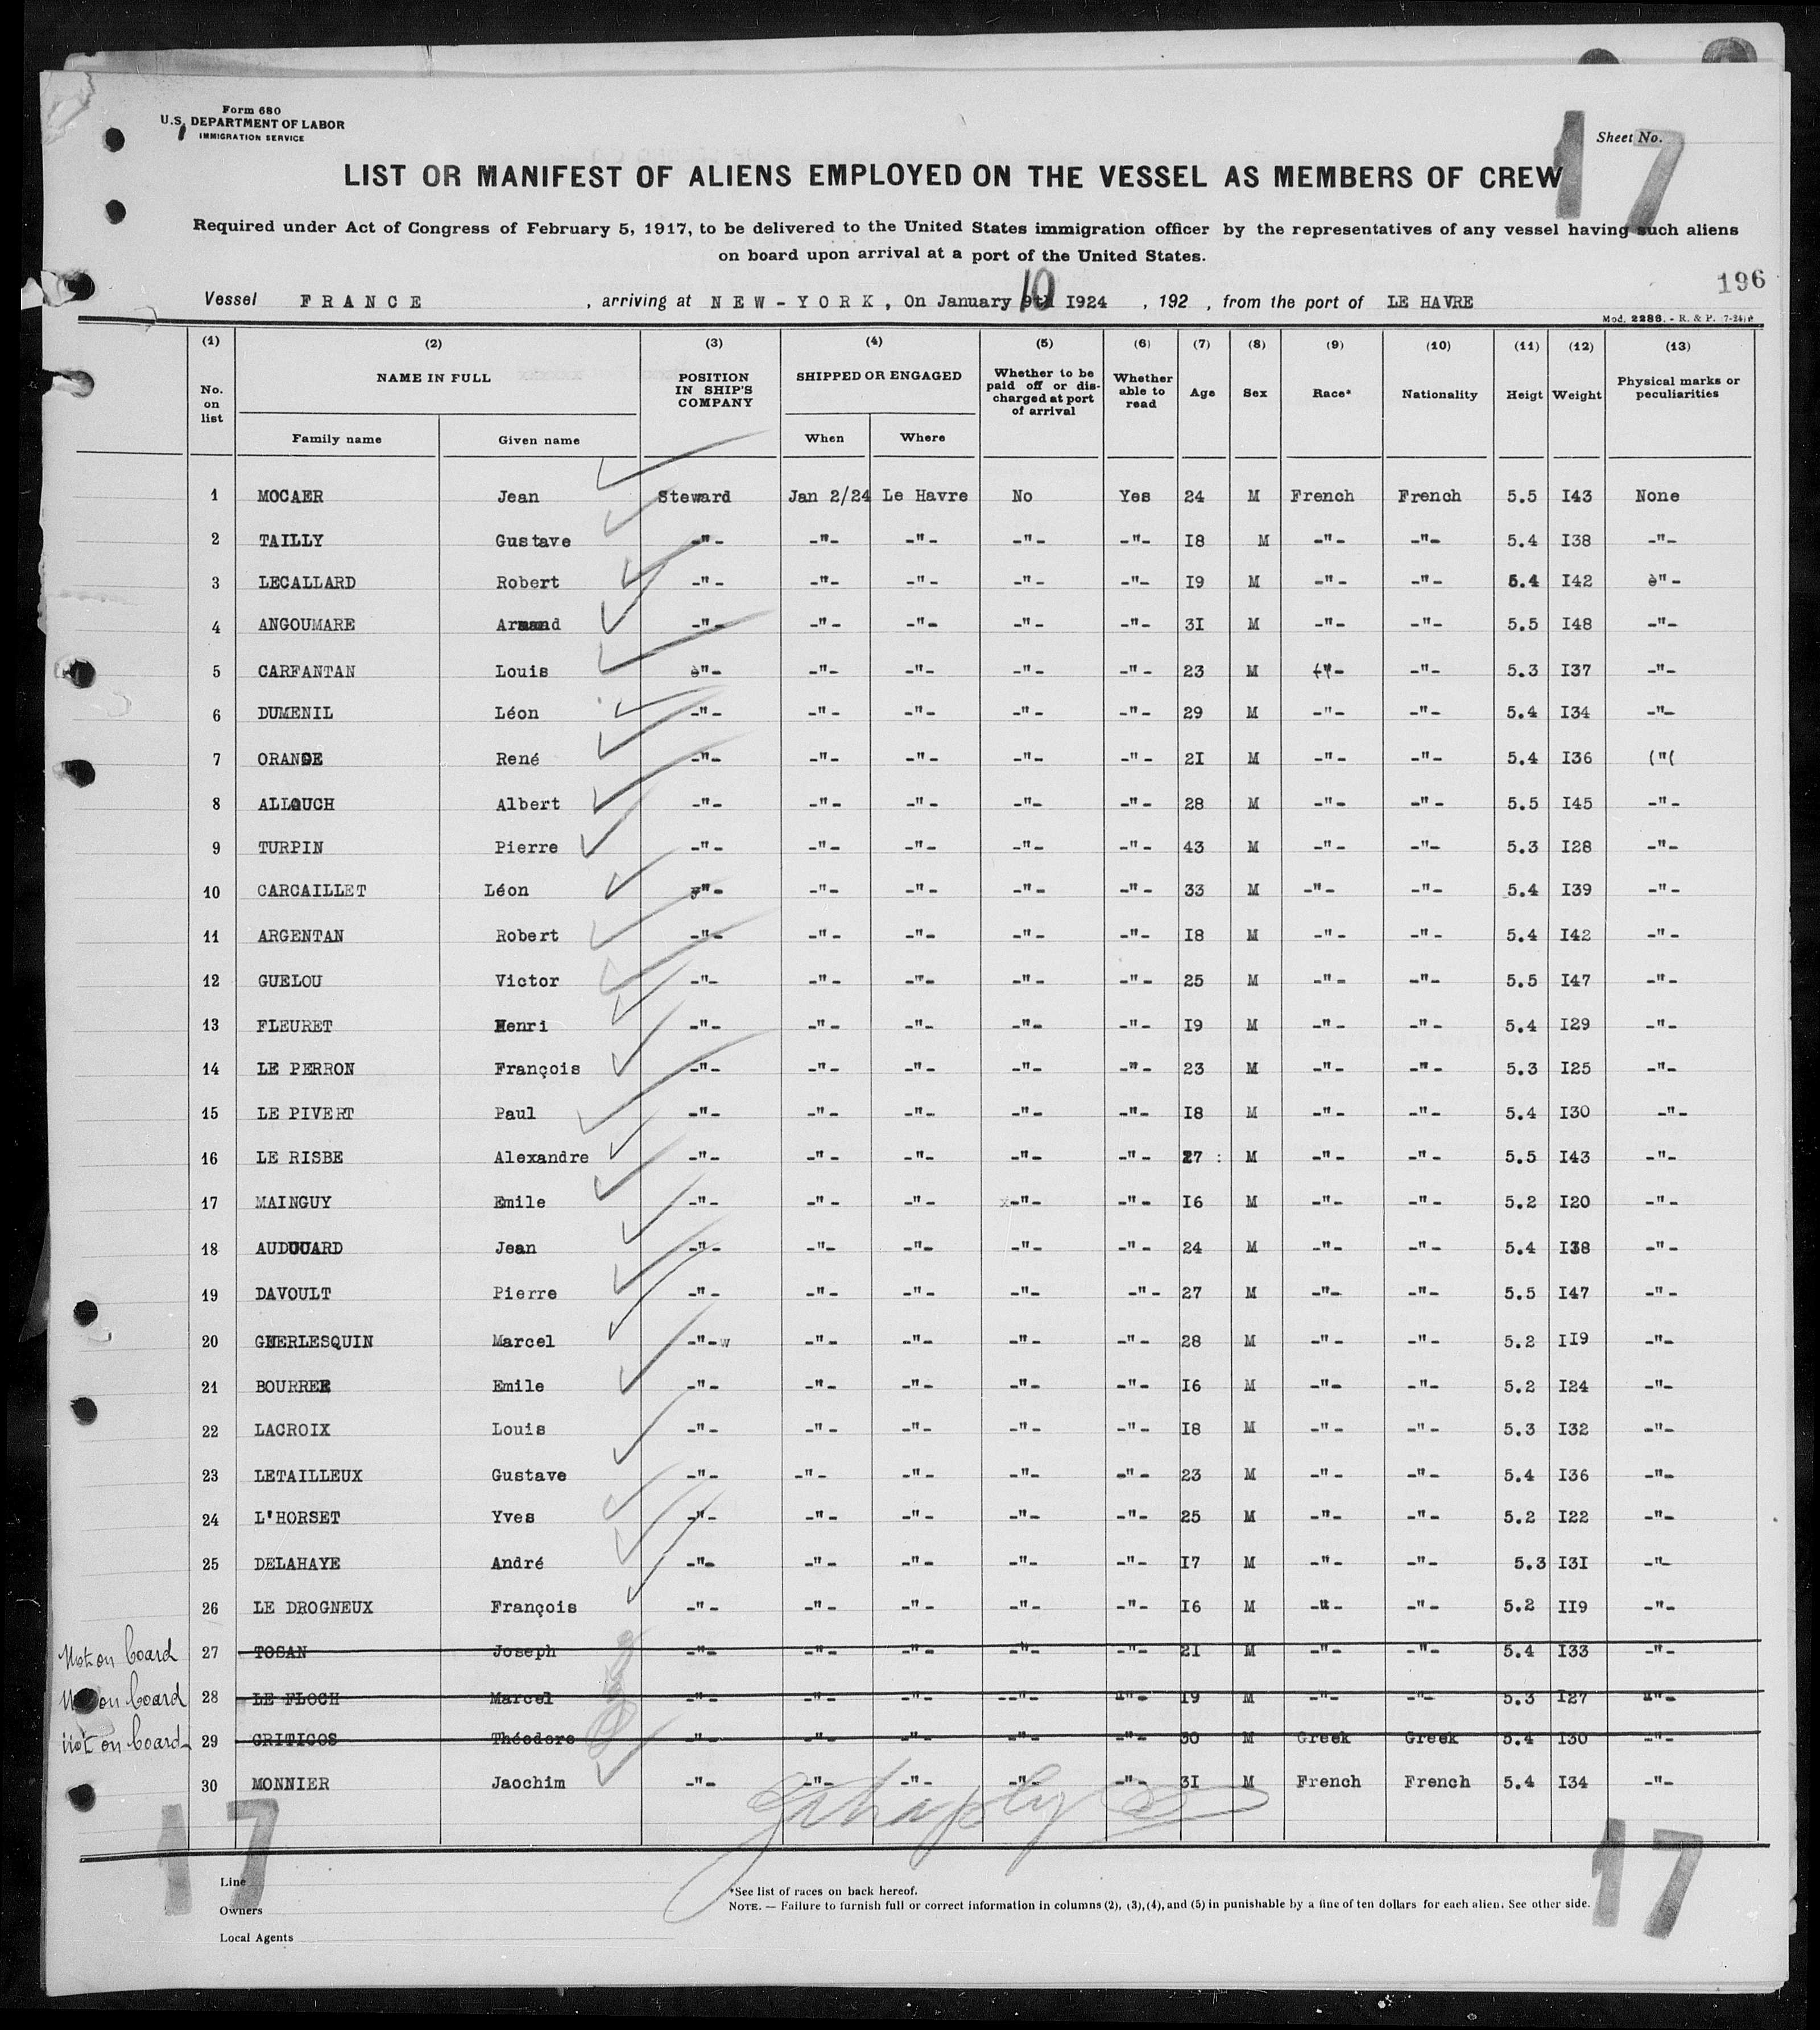 Form 680
U.S. DEPARTMENT OF LABOR
IMMIGRATION SERVICE
Sheet No. 17
LIST OR MANIFEST OF ALIENS EMPLOYED ON THE VESSEL AS MEMBERS OF CREW
Required under Act of Congress of February 5, 1917, to be delivered to the United States immigration officer by the representatives of any vessel having such aliens
on board upon arrival at a port of the United States.
196
Vessel FRANCE , arriving at NEW-YORK, On January 9th 10 I924 , 192 , from the port of LE HAVRE
Mod. 2286. - R. & P. 7-24
(1) (2) (3) (4) (5) (6) (7) (8) (9) (10) (11) (12) (13)
No. on list NAME IN FULL POSITION IN SHIP'S COMPANY SHIPPED OR ENGAGED Whether to be paid off or discharged at port of arrival Whether able to read Age Sex Race* Nationality Heigt Weight Physical marks or peculiarities
Family name Given name When Where
1 MOCAER Jean Steward Jan 2/24 Le Havre No Yes 24 M French French 5.5 I43 None
2 TAILLY Gustave -"- -"- -"- -"- -"- I8 M -"- -"- 5.4 I38 -"-
3 LECALLARD Robert -"- -"- -"- -"- -"- I9 M -"- -"- 5.4 I42 è"-
4 ANGOUMARE Armand -"- -"- -"- -"- -"- 3I M -"- -"- 5.5 I48 -"-
5 CARFANTAN Louis è"- -"- -"- -"- -"- 23 M ("- -"- 5.3 I37 -"-
6 DUMENIL Léon -"- -"- -"- -"- -"- 29 M -"- -"- 5.4 I34 -"-
7 ORANGE René -"- -"- -"- -"- -"- 2I M -"- -"- 5.4 I36 ("(
8 ALLOUCH Albert -"- -"- -"- -"- -"- 28 M -"- -"- 5.5 I45 -"-
9 TURPIN Pierre -"- -"- -"- -"- -"- 43 M -"- -"- 5.3 I28 -"-
10 CARCAILLET Léon "- -"- -"- -"- -"- 33 M -"- -"- 5.4 I39 -"-
11 ARGENTAN Robert -"- -"- -"- -"- -"- I8 M -"- -"- 5.4 I42 -"-
12 GUELOU Victor -"- -"- -"- -"- -"- 25 M -"- -"- 5.5 I47 -"-
13 FLEURET Henri -"- -"- -"- -"- -"- I9 M -"- -"- 5.4 I29 -"-
14 LE PERRON François -"- -"- -"- -"- -"- 23 M -"- -"- 5.3 I25 -"-
15 LE PIVERT Paul -"- -"- -"- -"- -"- I8 M -"- -"- 5.4 I30 -"-
16 LE RISBE Alexandre -"- -"- -"- -"- -"- 27 : M -"- -"- 5.5 I43 -"-
17 MAINGUY Emile -"- -"- -"- x-"- -"- I6 M -"- -"- 5.2 I20 -"-
18 AUDOUARD Jean -"- -"- -"- -"- -"- 24 M -"- -"- 5.4 I38 -"-
19 DAVOULT Pierre -"- -"- -"- -"- -"- 27 M -"- -"- 5.5 I47 -"-
20 GUERLESQUIN Marcel -"-w -"- -"- -"- -"- 28 M -"- -"- 5.2 II9 -"-
21 BOURREE Emile -"- -"- -"- -"- -"- I6 M -"- -"- 5.2 I24 -"-
22 LACROIX Louis -"- -"- -"- -"- -"- I8 M -"- -"- 5.3 I32 -"-
23 LETAILLEUX Gustave -"- -"- -"- -"- -"- 23 M -"- -"- 5.4 I36 -"-
24 L'HORSET Yves -"- -"- -"- -"- -"- 25 M -"- -"- 5.2 I22 -"-
25 DELAHAYE André -"- -"- -"- -"- -"- I7 M -"- -"- 5.3 I3I -"-
26 LE DROGNEUX François -"- -"- -"- -"- -"- I6 M -"- -"- 5.2 II9 -"-
Not on board 27 TOSAN Joseph -"- -"- -"- -"- -"- 2I M -"- -"- 5.4 I33 -"-
Not on board 28 LE FLOCH Marcel -"- -"- -"- --"- -"- I9 M -"- -"- 5.3 I27 -"-
not on board 29 CRITICOS Théodore -"- -"- -"- -"- -"- 30 M Greek Greek 5.4 I30 -"-
30 MONNIER Jaochim -"- -"- -"- -"- -"- 3I M French French 5.4 I34 -"-
17 17
Line
Owners
Local Agents
*See list of races on back hereof.
NOTE. — Failure to furnish full or correct information in columns (2), (3), (4), and (5) in punishable by a fine of ten dollars for each alien. See other side.